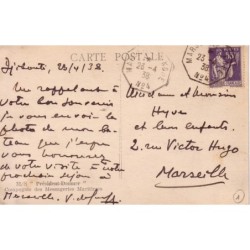 CARTE POSTALE
Djibouti, 26/4/38
Me rappelant à
votre bon souvenir
je vous envoie la
photo de mon ba-
teau que j'espère
vous honorerez
de votre visite à votre
prochain séjour à
Marseille.
M/S "Président-Doumer"
Compagnie des Messageries Maritimes
26-4
38
Nº4
Madame et Monsieur
et leurs enfants.
2. rue Victor Hugo
Marseille